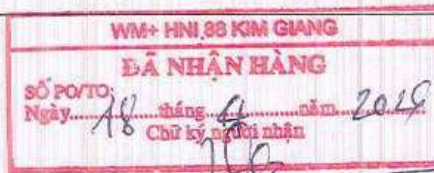 WM+ HNI 88 KIM GIANG
ĐÃ NHẬN HÀNG
SỐ PO/TO:
Ngày 18 tháng 4 năm
Chữ ký người nhận